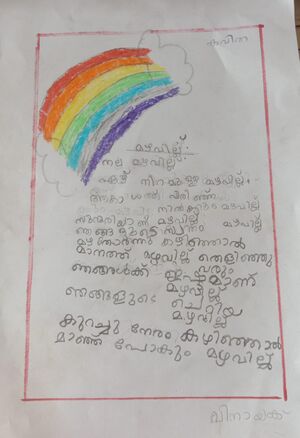 കവിത
മഴവില്ല്
നല്ല മഴവില്ല്
ഏഴ് നിറമുള്ള മഴവില്ല്
ആകാശത്ത് വിരിഞ്ഞു
നിൽക്കും മഴവില്ല്
സുന്ദരിയാണ് മഴവില്ല്
ഞങ്ങളുടെ സ്വന്തം മഴവില്ല്
മഴ തോർന്നു കഴിഞ്ഞാൽ
മാനത്ത് മഴവില്ല് തെളിഞ്ഞു വരും
ഞങ്ങൾക്ക് ഇഷ്ടമാണ് മഴവില്ല്
ഞങ്ങളുടെ ചെറിയ മഴവില്ല്
കുറച്ചു നേരം കഴിഞ്ഞാൽ
മാഞ്ഞ് പോകും മഴവില്ല്
വിനായക്